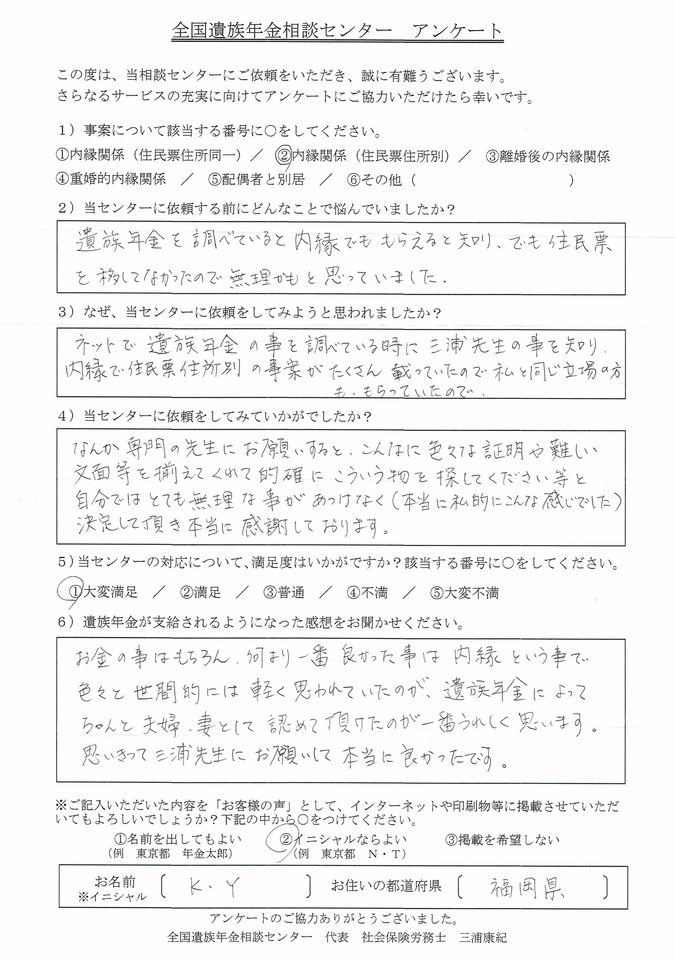 全国遺族年金相談センター　アンケート
この度は、当相談センターにご依頼をいただき、誠に有難うございます。
さらなるサービスの充実に向けてアンケートにご協力いただけたら幸いです。
1）事案について該当する番号に○をしてください。
①内縁関係（住民票住所同一）／　②内縁関係（住民票住所別）／　③離婚後の内縁関係
④重婚的内縁関係　／　⑤配偶者と別居　／　⑥その他（　　　　　　　　　　）
2）当センターに依頼する前にどんなことで悩んでいましたか？
遺族年金を調べていると内縁でももらえると知り、でも住民票
を移してなかったので無理かもと思っていました.
3）なぜ、当センターに依頼をしてみようと思われましたか？
ネットで遺族年金の事を調べている時に三浦先生の事を知り.
内縁で住民票住所別の事案がたくさん載っていたので私と同じ立場の方
も.もらっていたので.
4）当センターに依頼をしてみていかがでしたか？
なんか専門の先生にお願いすると、こんなに色々な証明や難しい
文面等を揃えてくれて的確にこういう物を探してください等と
自分ではとても無理な事があっけなく（本当に私的にこんな感じでした）
決定して頂き本当に感謝しております。
5）当センターの対応について、満足度はいかがですか？該当する番号に○をしてください。
①大変満足　／　②満足　／　③普通　／　④不満　／　⑤大変不満
6）遺族年金が支給されるようになった感想をお聞かせください。
お金の事はもちろん.何より一番良かった事は内縁という事で
色々と世間的には軽く思われていたのが、遺族年金によって
ちゃんと夫婦.妻として認めて頂けたのが一番うれしく思います。
思いきって三浦先生にお願いして本当に良かったです。
※ご記入いただいた内容を「お客様の声」として、インターネットや印刷物等に掲載させていただ
いてもよろしいでしょうか？下記の中から○をつけてください。
①名前を出してもよい　②イニシャルならよい　③掲載を希望しない
（例　東京都　年金太郎）　（例　東京都　N・T）
お名前　〔　K.Y　〕　お住いの都道府県　〔　福岡県　〕
※イニシャル
アンケートのご協力ありがとうございました。
全国遺族年金相談センター　代表　社会保険労務士　三浦康紀